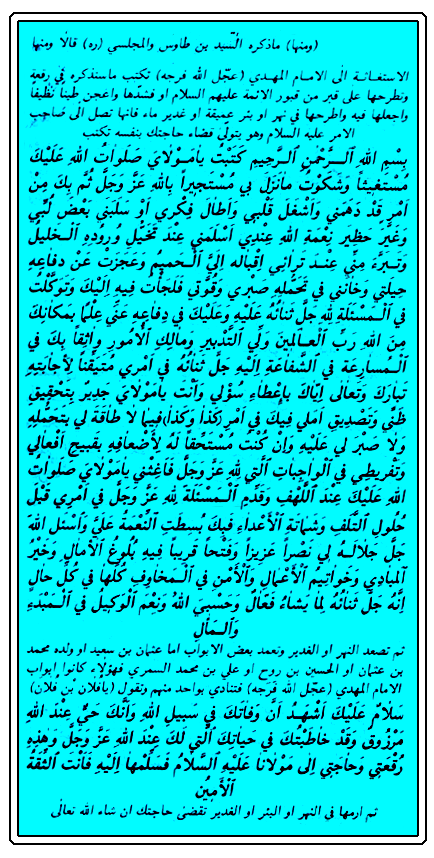 (ومنها) ماذكره السيد بن طاوس والمجلسي (ره) قالا ومنها
الاستغاثة الى الامام المهدي (عجّل الله فرجه) تكتب ماسنذكره في رقعة
وتطرحها على قبر من قبور الائمة عليهم السلام او فشدّها واعجن طيناً نظيفاً
واجعلها فيه واطرحها في نهر او بئر عميقة او غدير ماء فانها تصل الى صاحب
الامر عليه السلام وهو يتولّى قضاء حاجتك بنفسه تكتب
بِسْمِ اللهِ الـرَّحْمٰنِ الـرَّحِيمِ كَتَبْتُ يامَـوْلايَ صَلَواتُ اللهِ عَلَيْكَ
مُسْتَغيثاً وَشَكَوْتُ مانَزَلَ بي مُسْتَجيراً باللهِ عَزَّ وَجَلَّ ثُمَّ بِكَ مِنْ
اَمْرٍ قَدْ دَهَمَني وَاَشْغَلَ قَلْبي وَاَطالَ فِكْري اَوْ سَلَبَني بَعْضَ لُبّي
وَغَيَّرَ حَظيرَ نِعْمَةِ اللهِ عِنْدي اَسْلَمَني عِنْدَ تَخَيُّلِ وُرُودِهِ الْـخَليلُ
وَتَـبَرَّءَ مِنّي عِنْـدَ تَرائي اِقْبالِه اِلَيَّ الْـحَميمُ وَعَجَزَتْ عَنْ دِفاعِهِ
حيلَتي وَخانَني في تَحَمُّلِهِ صَبْري وَقُوَّتي فَلَجَأْتُ فيهِ اِلَيْكَ وَتَوَكَّلْتُ
في الْـمَسْئَلَةِ لِلّهِ جَلَّ ثَنائُهُ عَلَيْهِ وَعَلَيْكَ في دِفاعِهِ عَنّي عِلْماً بِمَكانِكَ
مِنَ اللهِ رَبِّ الْعـالَمينَ وَلِيِّ التَّدْبيرِ وَمالِكِ الْاُمُورِ واثِقاً بِكَ في
الْـمُسارَعَةِ في الشَّفاعَةِ اِلَيْهِ جَلَّ ثَنائُهُ في اَمْري مُتَيَقِّناً لِاِجابَتِهِ
تَبارَكَ وَتَعالى اِيّاكَ بِاِعْطاءِ سُؤْلي وَاَنْتَ يامَوْلايَ جَديرٌ بِتَحْقيقِ
ظَنّي وَتَصْديقِ اَمَلي فيكَ في اَمْرِ(كَذا وَكَذا)فيما لا طاقَةَ لي بِتَحَمُّلِهِ
وَلا صَبْرَ لي عَلَيْهِ وَاِنْ كُنْتُ مُسْتَحَقّاً لَهُ وَلِاَضْعافِهِ بِقَبيحِ اَفْعالي
وَتَفْريطي في الْواجِباتِ الَّتي لِلّهِ عَزَّ وَجَلَّ فَاَغِثْني يامَوْلايَ صَلَواتُ
اللهِ عَلَيْكَ عِنْدَ اللَّهْفِ وَقَدِّمِ الْـمَسْئَلَةَ لِلّهِ عَزَّ وَجَلَّ في اَمْري قَبْلَ
حُلُولِ التَّلَفِ وَشَماتَةِ الْاَعْداءِ فَبِكَ بُسِطَتِ النِّعْمَةُ عَلَيَّ وَاَسْئَلِ اللهَ
جَلَّ جَلالُـهُ لي نَصْراً عَزيزاً وَفَتْحاً قَريباً فيهِ بُلُوغُ الْآمالِ وَخَيْرُ
الْمَبادي وَخَواتيمُ الْاَعْمالِ وَالْاَمْنُ مِنَ الْـمَخاوِفِ كُلِّها في كُلِّ حالٍ
اِنَّهُ جَلَّ ثَنائُهُ لِما يَشاءُ فَعّالٌ وَحَسْبِيَ اللهُ وَنِعْمَ الْوَكيلُ في الْـمَبْدَءِ
وَالْـمَـآلِ
ثم تصعد النهر او الغدير وتعمد بعض الابواب اما عثمان بن سعيد او ولده محمد
بن عثمان او الحسين بن روح او علي بن محمد السمري فهؤلاء كانوا ابواب
الامام المهدي (عجّل الله فَرَجه) فتنادي بواحد منهم وتقول (يافلان بن فلان)
سَلامٌ عَلَيْكَ اَشْهَـدُ اَنَّ وَفاتَكَ في سَبيلِ اللهِ وَاَنَّكَ حَيٌّ عِنْدَ اللهِ
مَرْزُوقٌ وَقَدْ خاطَبْتُكَ في حَياتِكَ الَّتي لَكَ عِنْدَ اللهِ عَزَّ وَجَلَّ وَهٰذِهِ
رُقْعَتي وَحاجَتي اِلى مَوْلانا عَلَيْهِ السَّلامُ فَسَلِّمْها اِلَيْهِ فَاَنْتَ الثِّقَةُ
الْاَمينُ
ثم ارمها في النهر او البئر او الغدير تقضى حاجتك ان شاء الله تعالى